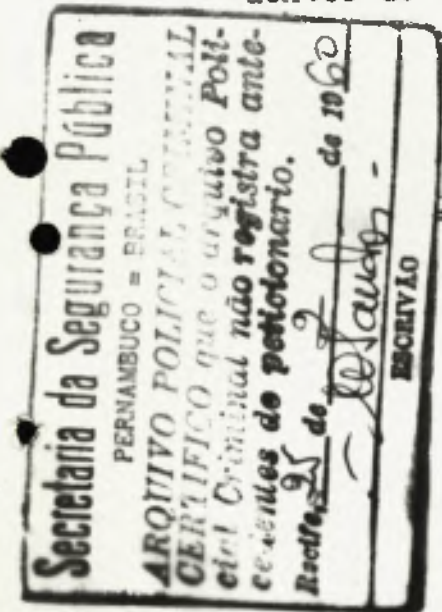 Secretaria da Segurança Pública
PERNAMBUCO = BRASIL
ARQUIVO POLICIAL CRIMINAL
CERTIFICO que o arquivo Poli-
cial Criminal não registra ante-
cedentes do peticionario.
Recife, 25 de 9 de 1960
ESCRIVÃO